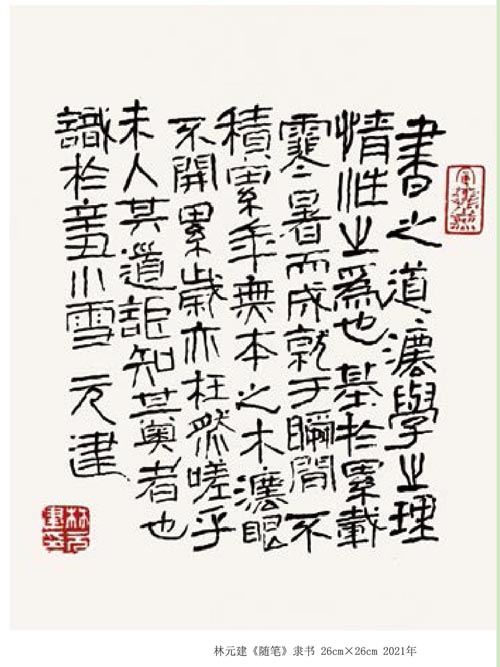 書之道、灋學之理
情性之爲也基於累載
寒暑而成就于瞬間不
積累年無本之木灋眼
不開累歲亦枉然嗟乎
未入其道詎知其奧者也
識於辛丑小雪 元建
林元建《随笔》隶书 26cm×26cm 2021年